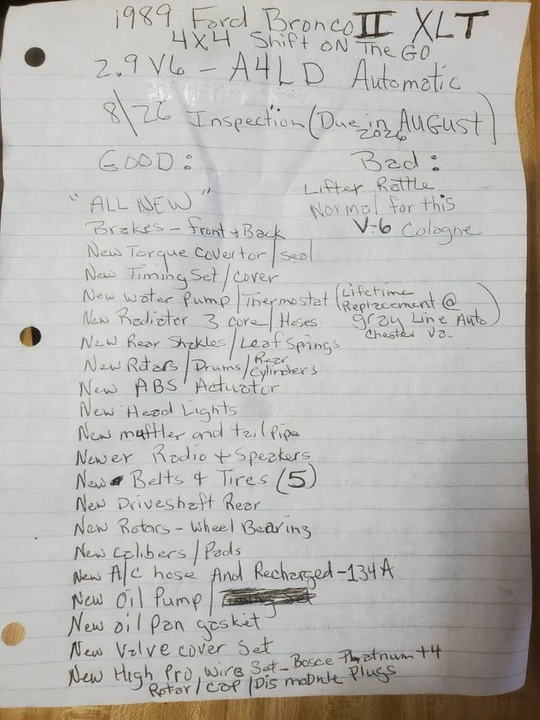 1989 Ford Bronco II XLT
4X4 Shift ON The GO
2.9 V6 - A4LD Automatic
8/26 Inspection (Due in AUGUST)
2026
GOOD:
Bad:
Lifter Rattle
Normal for this
V-6 Cologne
"ALL NEW"
Brakes - front + Back
New Torque Covertor / seal
New Timing Set / cover
New Water Pump / Thermostat (Lifetime
Replacement @
gray Line Auto
Chester Va.)
New Radiator 3 core / Hoses
New Rear Shakles / Leaf Springs
New Rotars / Drums / Rear
Cylinders
New ABS Actuator
New Head Lights
New muffler and tail pipe
Newer Radio + Speakers
New Belts & Tires (5)
New Driveshaft Rear
New Rotors - Wheel Bearing
New Calibers / Pads
New A/C hose And Recharged - 134A
New Oil Pump /
New oil pan gasket
New Valve cover Set
New High Pro Wire Set - Bosce Platnum +4
Rotor / Cap / Dis module Plugs